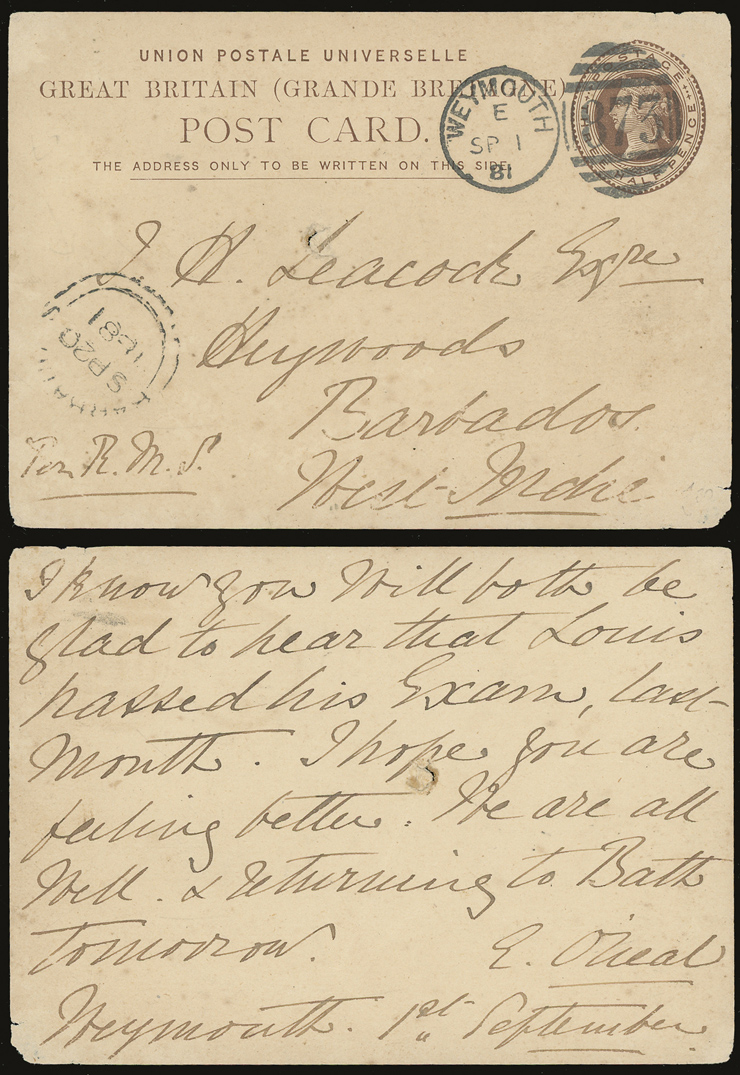 UNION POSTALE UNIVERSELLE
GREAT BRITAIN (GRANDE BRETAGNE)
POST CARD.
THE ADDRESS ONLY TO BE WRITTEN ON THIS SIDE.
WEYMOUTH
E
SP 1
81
873
POSTAGE
HALF PENCE
J H. Leacock Esqre
Heywoods
Barbados.
West Indie
Per R. M. S.
SP 20
81
I know you Will both be
glad to hear that Louis
passed his Exam, last
Month. I hope you are
feeling better. We are all
Well. & returning to Bath
Tomorrow. E. O'Neal
Weymouth. 1st September.